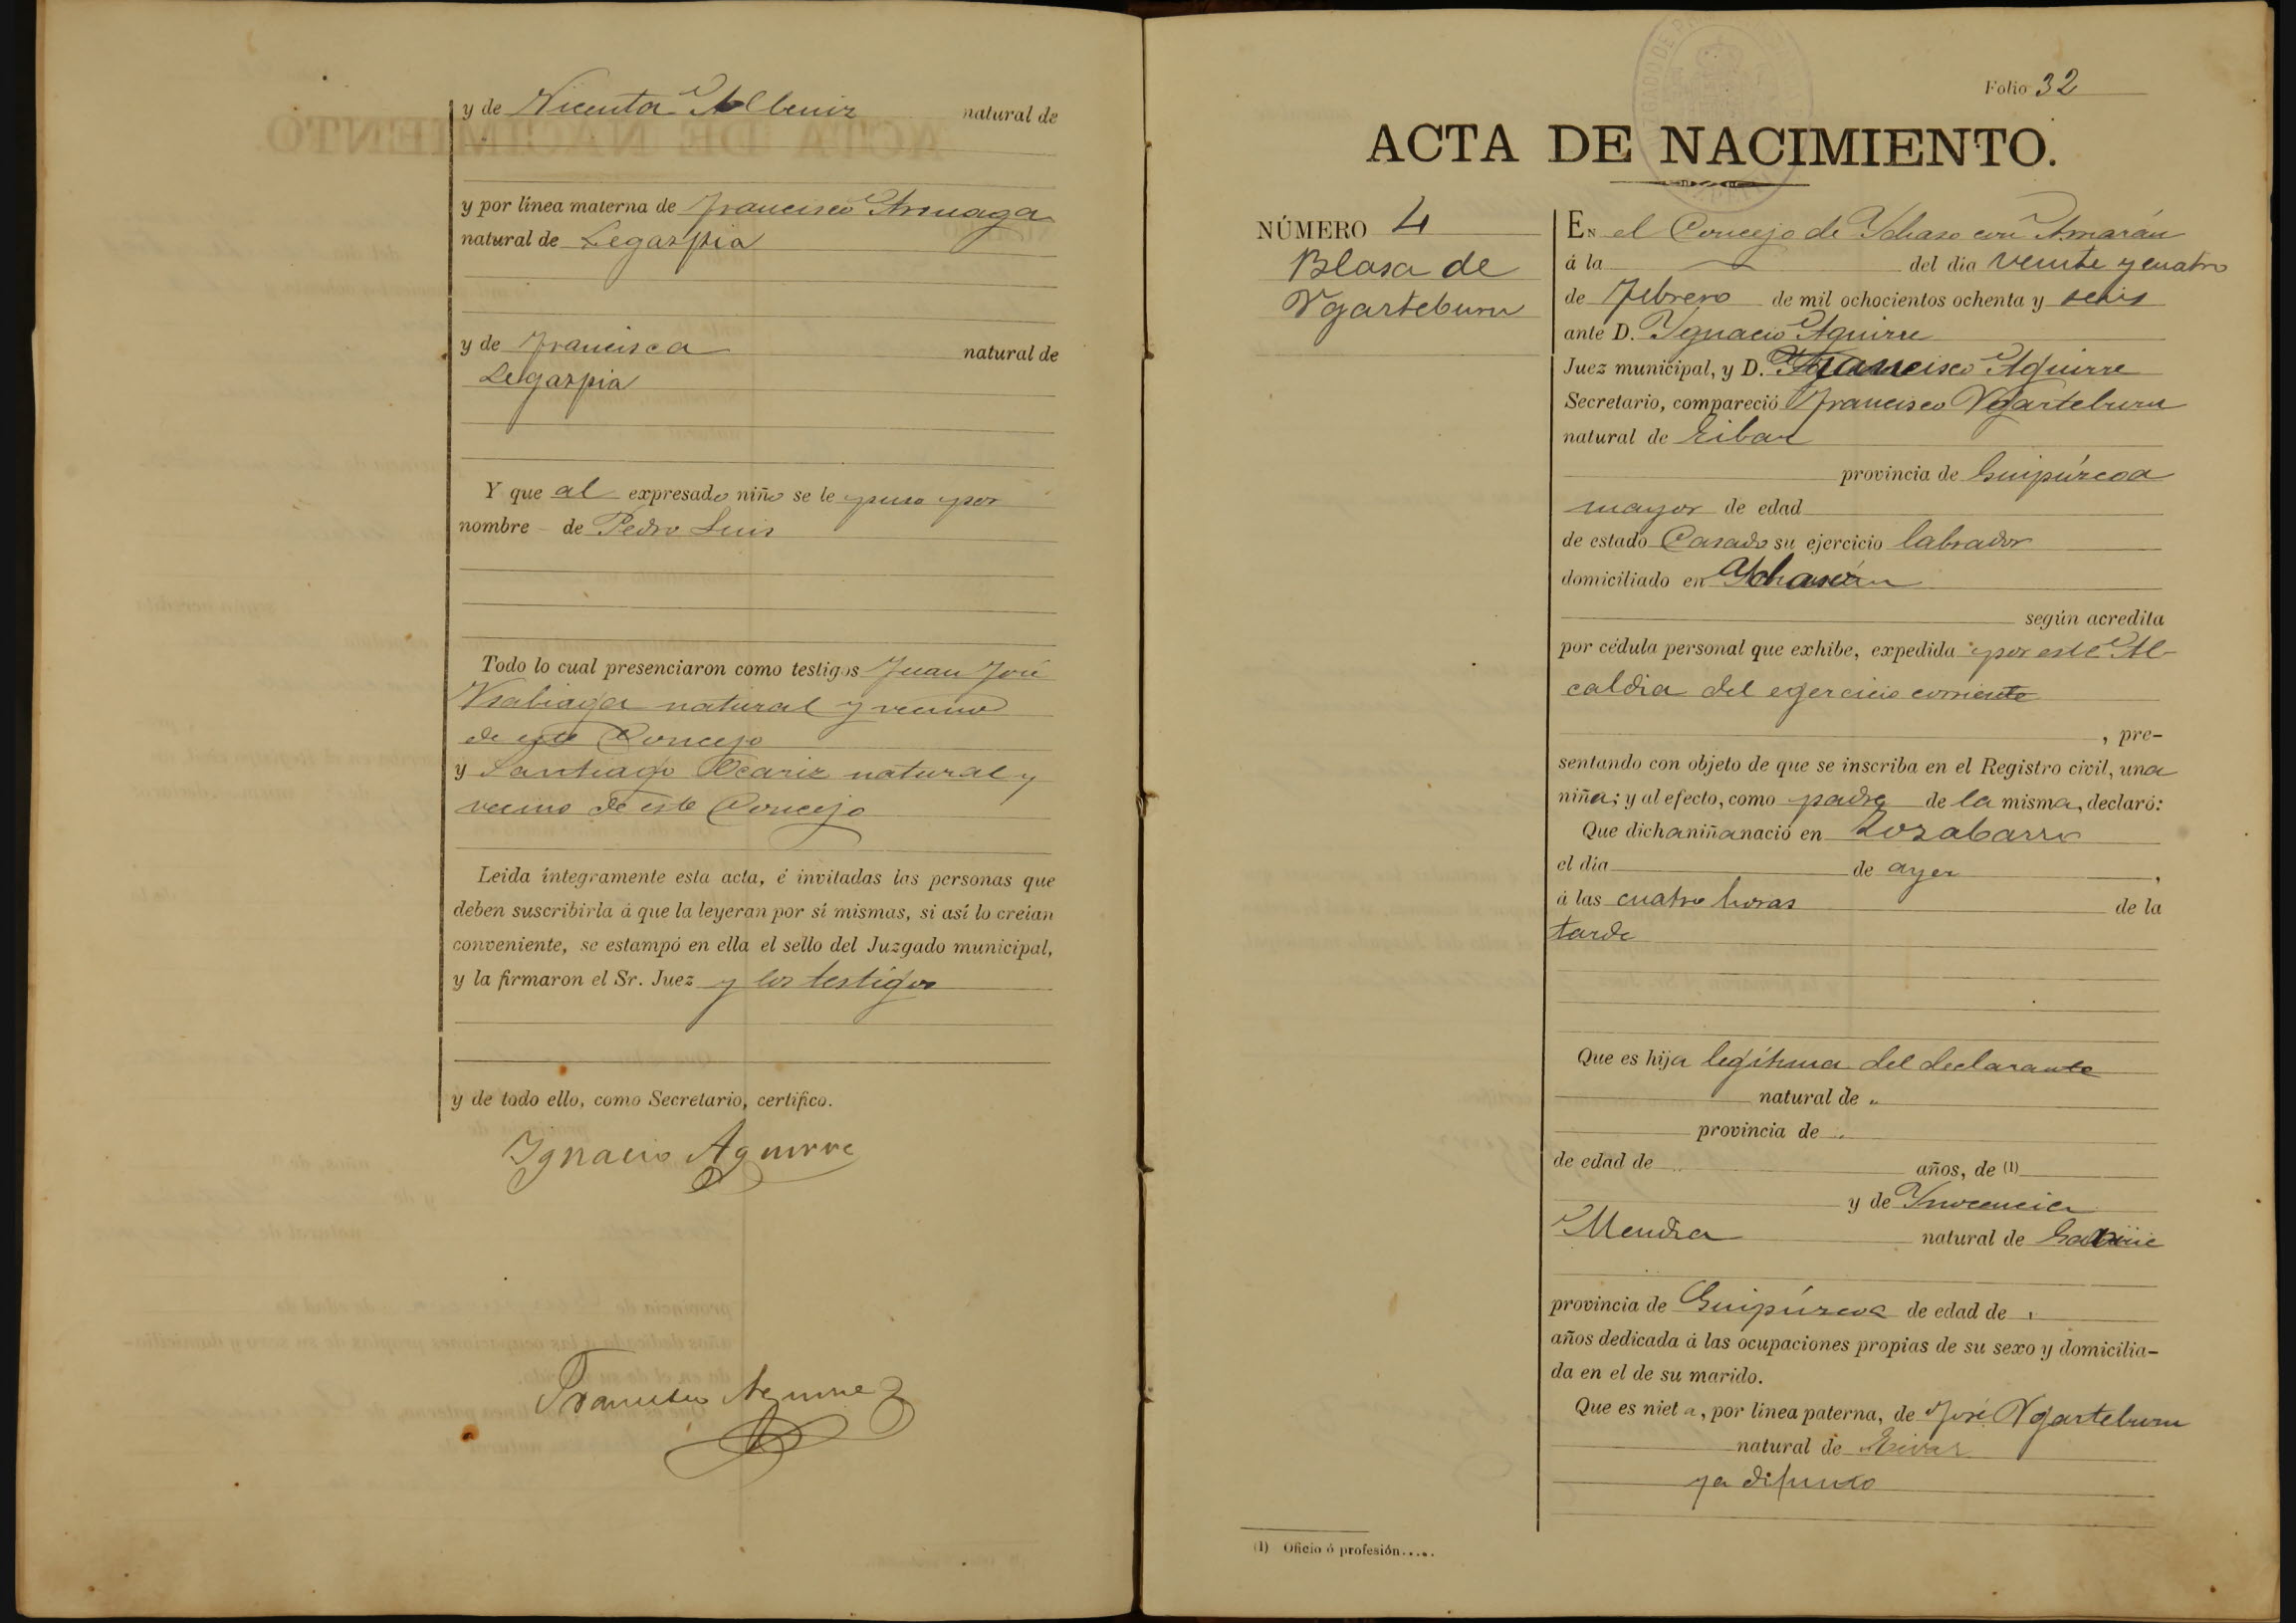 y de Vicenta Albeniz natural de
y por línea materna de Francisco Arruaga
natural de Legazpia
y de Francisca natural de
Legazpia
Y que al expresado niño se le puso por
nombre de Pedro Luis
Todo lo cual presenciaron como testigos Juan José
Ysabiaga natural y vecino
de este Concejo
y Santiago Ocariz natural y
vecino de este Concejo
Leida íntegramente esta acta, é invitadas las personas que
deben suscribirla á que la leyeran por sí mismas, si así lo creian
conveniente, se estampó en ella el sello del Juzgado municipal,
y la firmaron el Sr. Juez y los testigos
y de todo ello, como Secretario, certifico.
Ygnacio Aguirre
Francisco Aguirre
Folio 32
ACTA DE NACIMIENTO.
NÚMERO 4
Blasa de
Ygarteburu
En el Concejo de Ychaso con Arriarán
á la del dia veinte y cuatro
de Febrero de mil ochocientos ochenta y seis
ante D. Ygnacio Aguirre
Juez municipal, y D. Francisco Aguirre
Secretario, compareció Francisco Ygarteburu
natural de Eibar
provincia de Guipúzcoa
mayor de edad
de estado Casado su ejercicio labrador
domiciliado en
según acredita
por cédula personal que exhibe, expedida por este Al-
caldia del egercicio corriente
, pre-
sentando con objeto de que se inscriba en el Registro civil, una
niña; y al efecto, como padre de la misma, declaró:
Que dicha niña nació en Lozabarro
el dia de ayer ,
á las cuatro horas de la
tarde
Que es hija legítima del declarante
natural de "
provincia de "
de edad de " años, de (1)
y de Ynocencia
Mendia natural de
provincia de Guipúzcoa de edad de "
años dedicada á las ocupaciones propias de su sexo y domicilia-
da en el de su marido.
Que es nieta, por línea paterna, de José Ygarteburu
natural de Eivar
ya difunto
(1) Oficio ó profesión.....